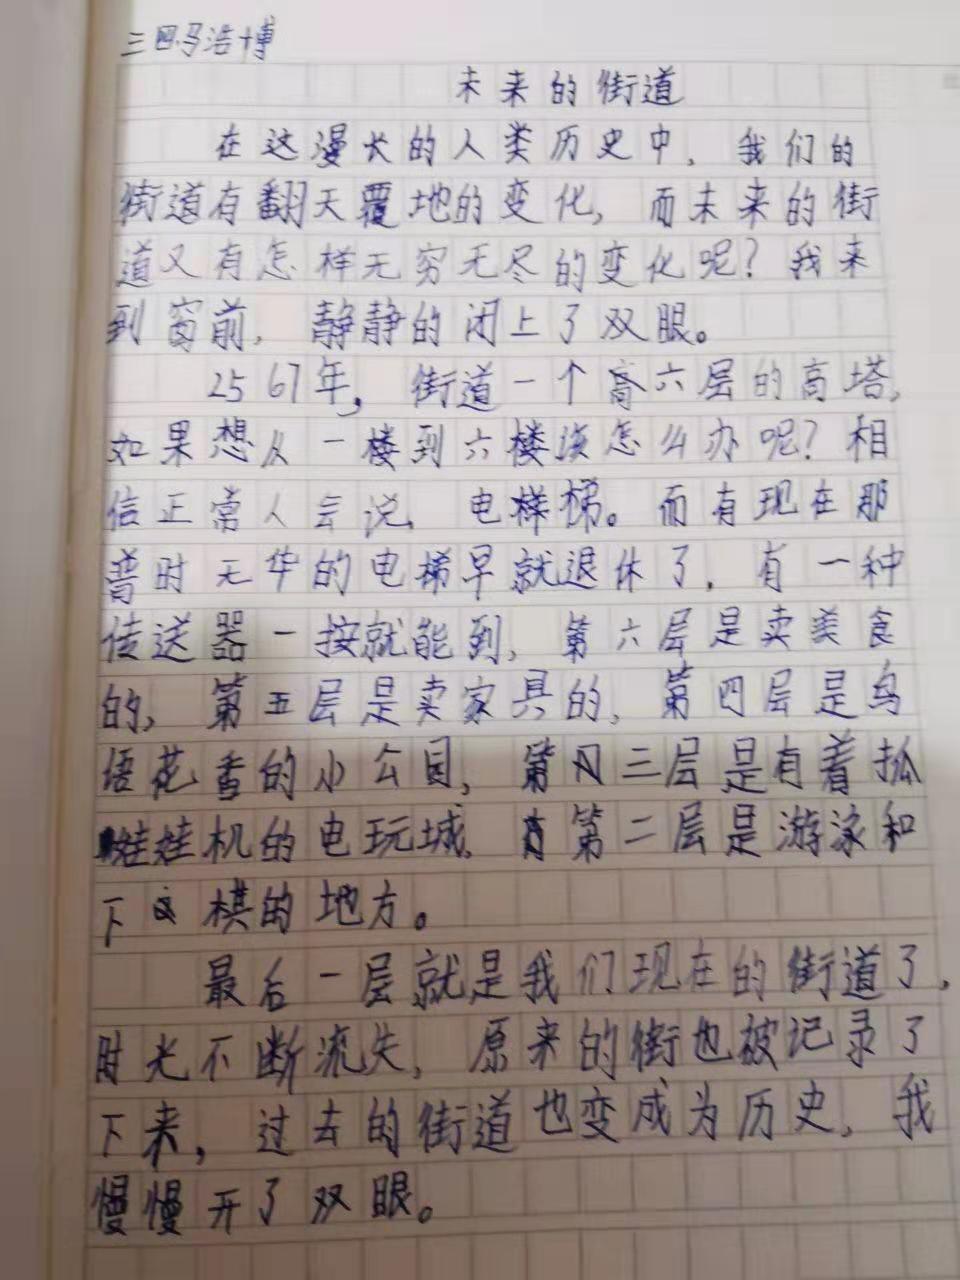 三四马浩博
未来的街道
在这漫长的人类历史中，我们的
街道有翻天覆地的变化，而未来的街
道又有怎样无穷无尽的变化呢？我来
到窗前，静静的闭上了双眼。
2567年，街道一个高六层的高塔，
如果想从一楼到六楼该怎么办呢？相
信正常人会说，电梯。而有现在那
普时无华的电梯早就退休了，有一种
传送器一按就能到，第六层是卖美食
的，第五层是卖家具的，第四层是鸟
语花香的小公园，第三层是有着抓
娃娃机的电玩城，第二层是游泳和
下棋的地方。
最后一层就是我们现在的街道了，
时光不断流失，原来的街也被记录了
下来，过去的街道也变成为历史，我
慢慢开了双眼。